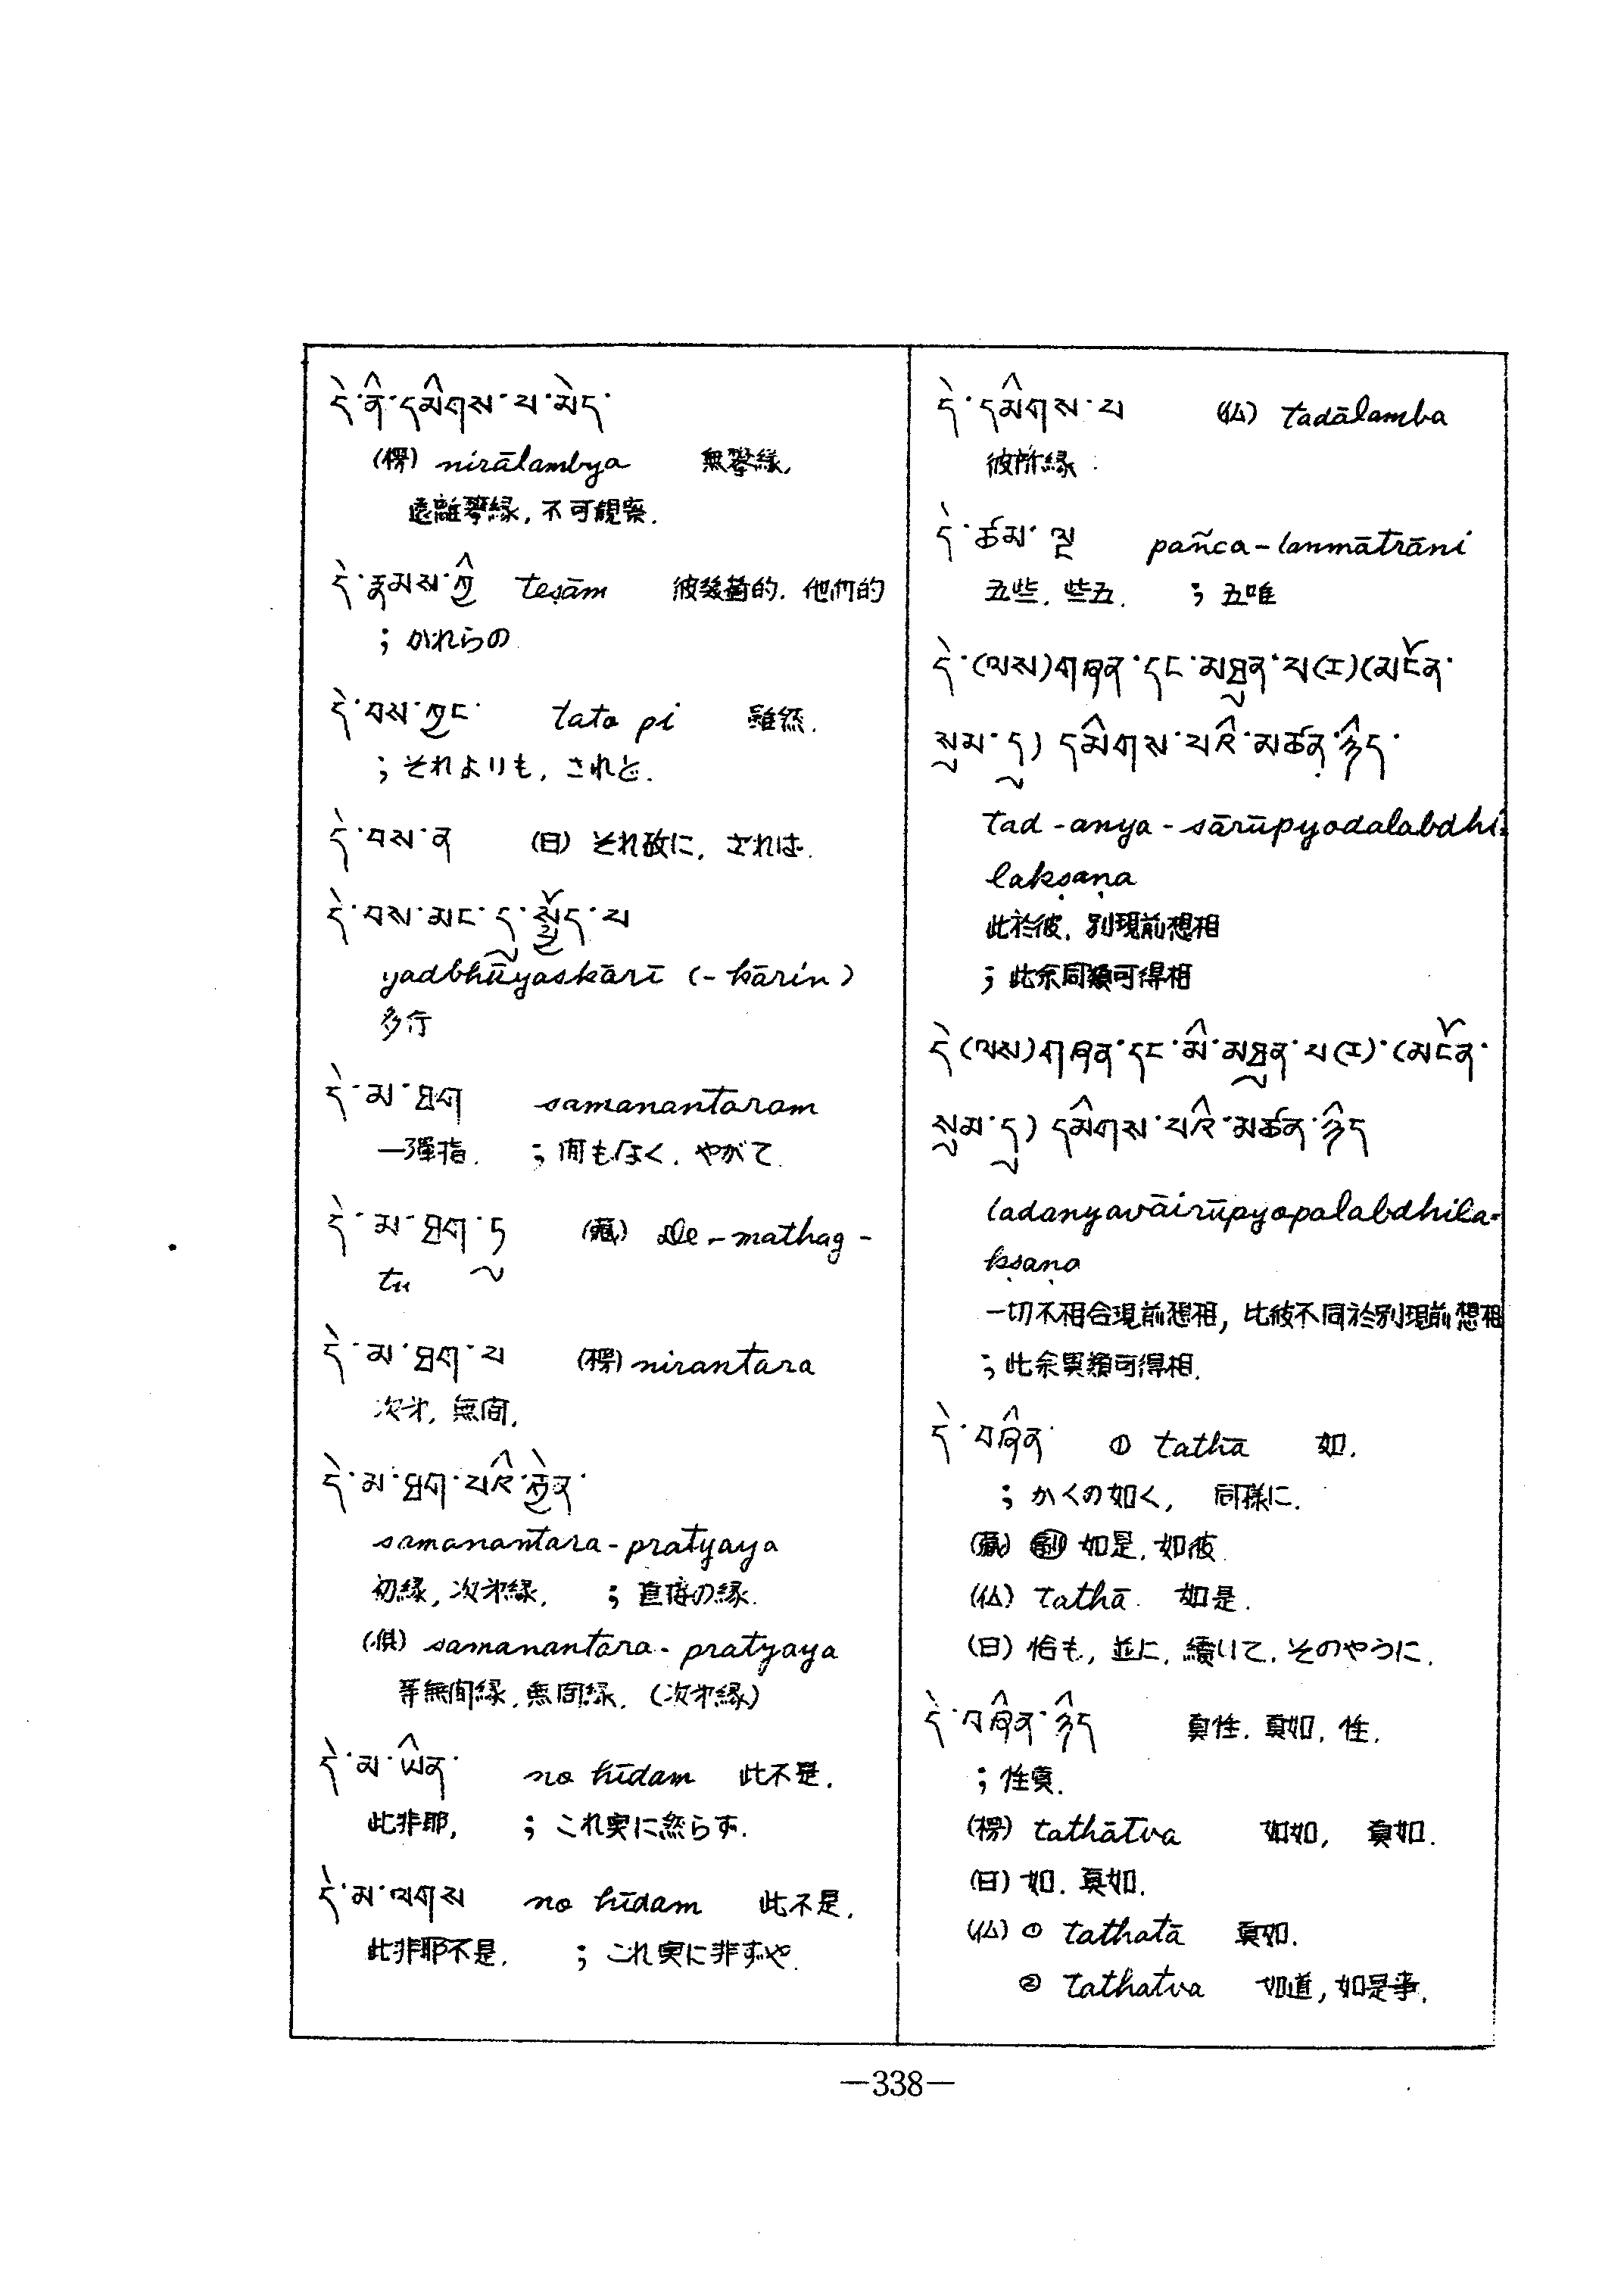 དེ་ནི་དམིགས་པ་མེད་
(楞) nirālambya 無攀縁,
遠離攀縁, 不可観察.
དེ་རྣམས་ཀྱི teṣām 彼幾箇的. 他們的
; かれらの
དེ་བས་ཀྱང་ tato pi 雖然.
; それよりも, されど.
དེ་བས་ན (日) それ故に, されは.
དེ་བས་མང་དུ་སྤྱོད་པ
yadbhūyaskārī (-kārin)
多行
དེ་མ་ཐག samanantaram
一彈指. ; 間もなく, やがて.
དེ་མ་ཐག་ཏུ (蔵) De-mathag-
tu
དེ་མ་ཐག་པ (楞) nirantara
次才, 無間,
དེ་མ་ཐག་པའི་རྐྱེན་
samanantara-pratyaya
初縁, 次才縁, ; 直接の縁.
(倶) samanantara-pratyaya
等無間縁, 無間縁. (次才縁)
དེ་མ་ཡིན་ no hīdam 此不是.
此非耶, ; これ実に然らず.
དེ་མ་ལགས no hīdam 此不是.
此非耶不是. ; これ実に非ずや.
དེ་དམིགས་པ (仏) tadālamba
彼所縁
དེ་ཙམ་ལྔ pañca-lanmātrāni
五些, 些五. ; 五唯
དེ་(ལས)གཞན་དང་མཐུན་པ(ར)(མངོན་
སུམ་དུ) དམིགས་པའི་མཚན་ཉིད་
tad-anya-sārūpyodalabdhi-
lakṣaṇa
此於彼, 別現前想相
; 此余同類可得相
དེ(ལས)གཞན་དང་མི་མཐུན་པ(ར)་(མངོན་
སུམ་དུ) དམིགས་པའི་མཚན་ཉིད
ladanyavāirūpyopalabdhila-
kṣaṇa
一切不相合現前想相, 比彼不同於別現前想相
; 此余異類可得相.
དེ་བཞིན་ ① tathā 如.
; かくの如く, 同様に.
(蔵) 副 如是, 如彼
(仏) tathā 如是.
(日) 恰も, 並に, 續いて, そのやうに.
དེ་བཞིན་ཉིད 真性. 真如, 性.
; 性眞.
(楞) tathātva 如如, 真如.
(日) 如. 真如.
(仏) ① tathatā 真如.
② tathatva 如道, 如是事.
—338—